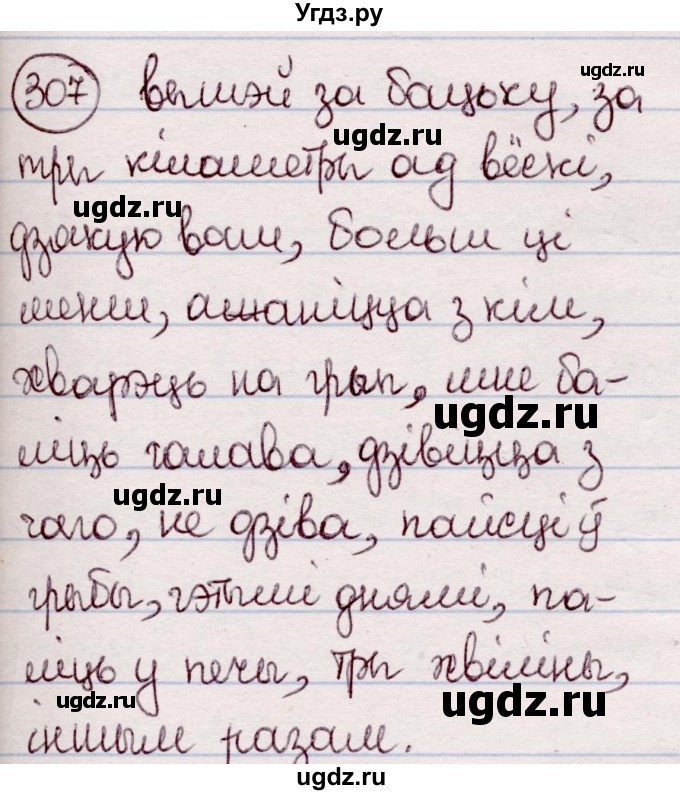 Угдз.ру
ugdz.ru
307 вышэй за бацьку, за
ugdz.ru
тры кіламетры ад вёскі,
ugdz.ru
дзякую вам, больш ці
менш, ажаніцца з кім,
хварэць на грып, мне ба-
ugdz.ru
ліць галава, дзівіцца з
ugdz.ru
чаго, не дзіва, пайсці ў
грыбы, гэтымі днямі, па-
ліць у печы, тры хвіліны,
ugdz.ru
ugdz.ru
іншым разам.
ugdz.ru